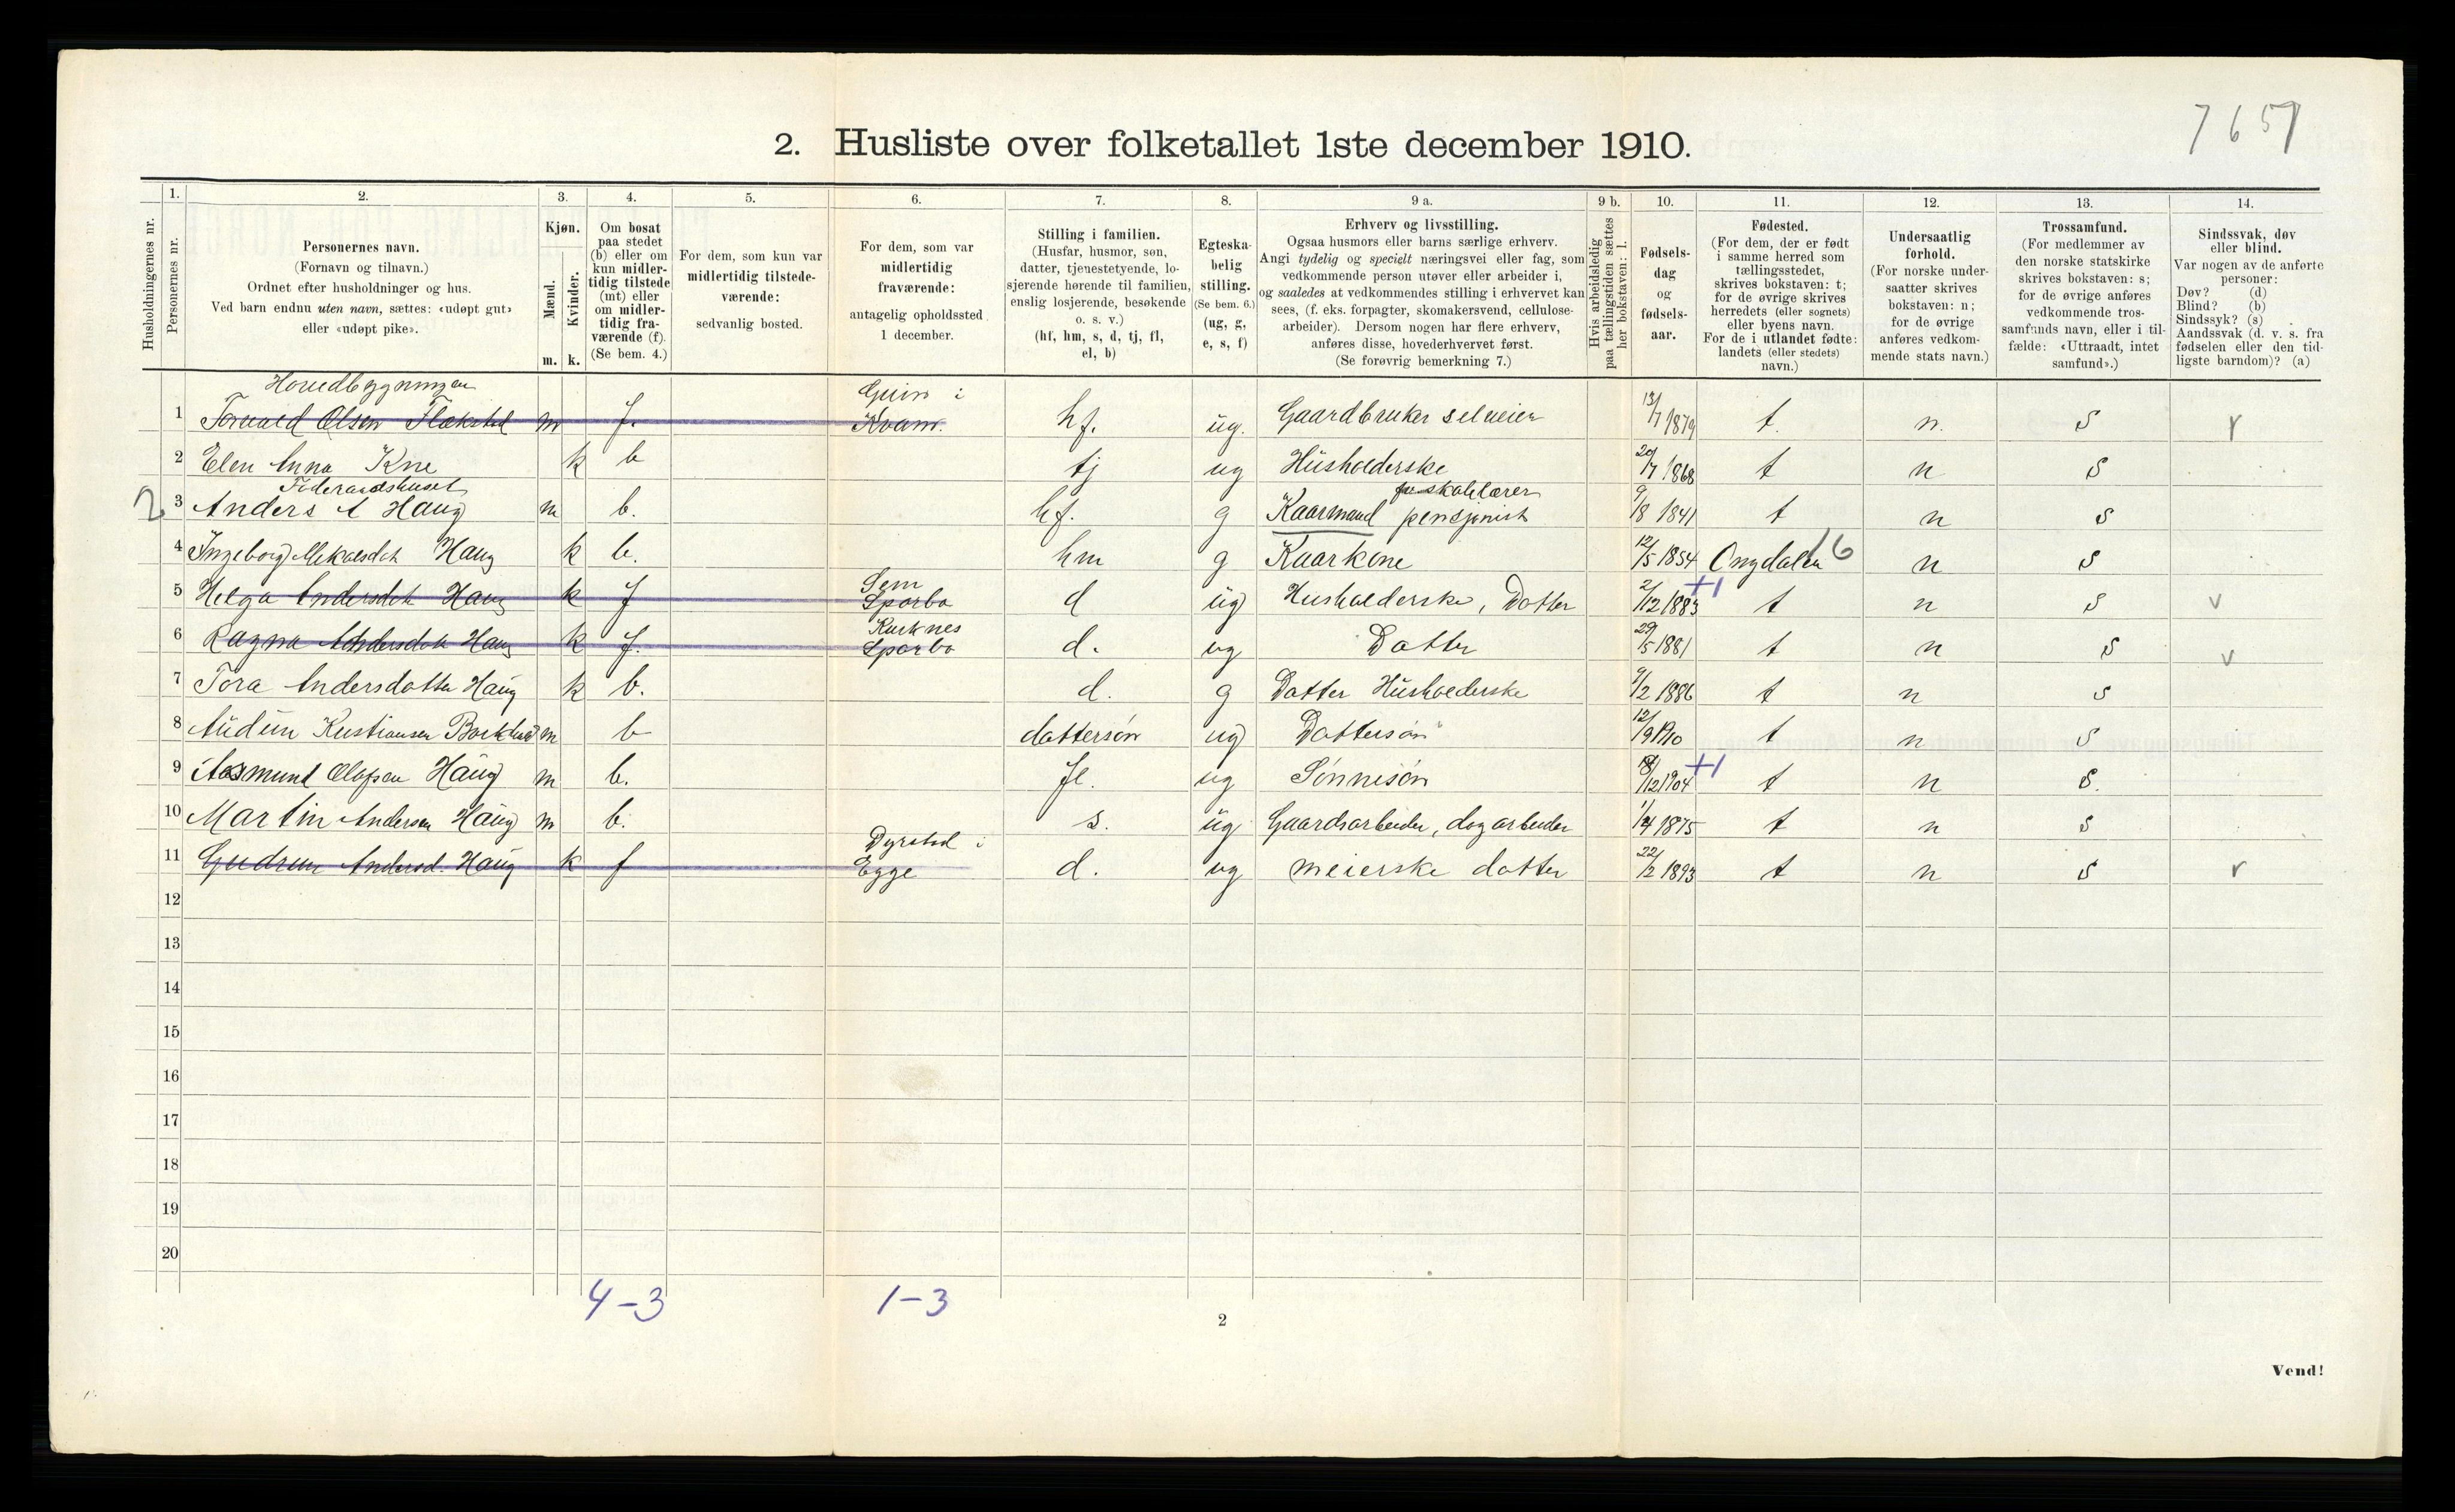 7 6 5 7
2. Husliste over folketallet 1ste december 1910.
Husholdningernes nr.
1. Personernes nr.
2. Personernes navn.
(Fornavn og tilnavn.)
Ordnet efter husholdninger og hus.
Ved barn endnu uten navn, sættes: «udøpt gut»
eller «udøpt pike».
3. Kjøn.
Mænd. m.
Kvinder. k.
4. Om bosat
paa stedet
(b) eller om
kun midler-
tidig tilstede
(mt) eller
om midler-
tidig fra-
værende (f).
(Se bem. 4.)
5. For dem, som kun var
midlertidig tilstede-
værende:
sedvanlig bosted.
6. For dem, som var
midlertidig
fraværende:
antagelig opholdssted
1 december.
7. Stilling i familien.
(Husfar, husmor, søn,
datter, tjenestetyende, lo-
sjerende hørende til familien,
enslig losjerende, besøkende
o. s. v.)
(hf, hm, s, d, tj, fl,
el, b)
8. Egteska-
belig
stilling.
(Se bem. 6.)
(ug, g,
e, s, f)
9 a. Erhverv og livsstilling.
Ogsaa husmors eller barns særlige erhverv.
Angi tydelig og specielt næringsvei eller fag, som
vedkommende person utøver eller arbeider i,
og saaledes at vedkommendes stilling i erhvervet kan
sees, (f. eks. forpagter, skomakersvend, cellulose-
arbeider). Dersom nogen har flere erhverv,
anføres disse, hovederhvervet først.
(Se forøvrig bemerkning 7.)
9 b. Hvis arbeidsledig
paa tællingstiden sættes
her bokstaven: l.
10. Fødsels-
dag
og
fødsels-
aar.
11. Fødested.
(For dem, der er født
i samme herred som
tællingsstedet,
skrives bokstaven: t;
for de øvrige skrives
herredets (eller sognets)
eller byens navn.
For de i utlandet fødte:
landets (eller stedets)
navn.)
12. Undersaatlig
forhold.
(For norske under-
saatter skrives
bokstaven: n;
for de øvrige
anføres vedkom-
mende stats navn.)
13. Trossamfund.
(For medlemmer av
den norske statskirke
skrives bokstaven: s;
for de øvrige anføres
vedkommende tros-
samfunds navn, eller i til-
fælde: «Uttraadt, intet
samfund».)
14. Sindssvak, døv
eller blind.
Var nogen av de anførte
personer:
Døv? (d)
Blind? (b)
Sindssyk? (s)
Aandssvak (d. v. s. fra
fødselen eller den tid-
ligste barndom)? (a)
Hovedbygningen
1 Torvald Olsen Flekstad m f. Guin i Kvam. hf. ug. Gaardbruker selveier 13/7 1879 t. n. S v
2 Elen Anna Kne k b tj ug Husholderske 20/7 1868 t n S
Føderaadshuset
2 3 Anders A Haug m b. hf. g Kaarmand skolelærer pensjonist 9/8 1841 t n S
4 Ingeborg Mekalsdat Haug k b. hm g Kaarkone 12/5 1854 16 n S
5 Helga Andersdat Haug k f Sem Sparbo d ug Husholderske, Datter 2/12 1883 +1 t n S v
6 Ragna Andersdat Haug k f. Sparbo d. ug Datter 29/5 1881 t n S v
7 Tora Andersdatter Haug k b. d. g Datter Husholderske 9/2 1886 t n S
8 Audun Kristiansen m b dattersøn ug Dattersøn 12/9 1910 t n S
9 Aasmund Olafsen Haug m b. fl. ug Sønnesøn 1904 +1 t n S.
10 Martin Andersen Haug m b. s. ug Gaardsarbeider, dagarbeider 1/4 1875 t n S
11 Gudrun Andersd. Haug k f Dyrstad i Egge d. ug meierske datter 22/2 1893 t n S v
12
13
14
15
16
17
18
19
20
4-3 1-3
2
Vend!